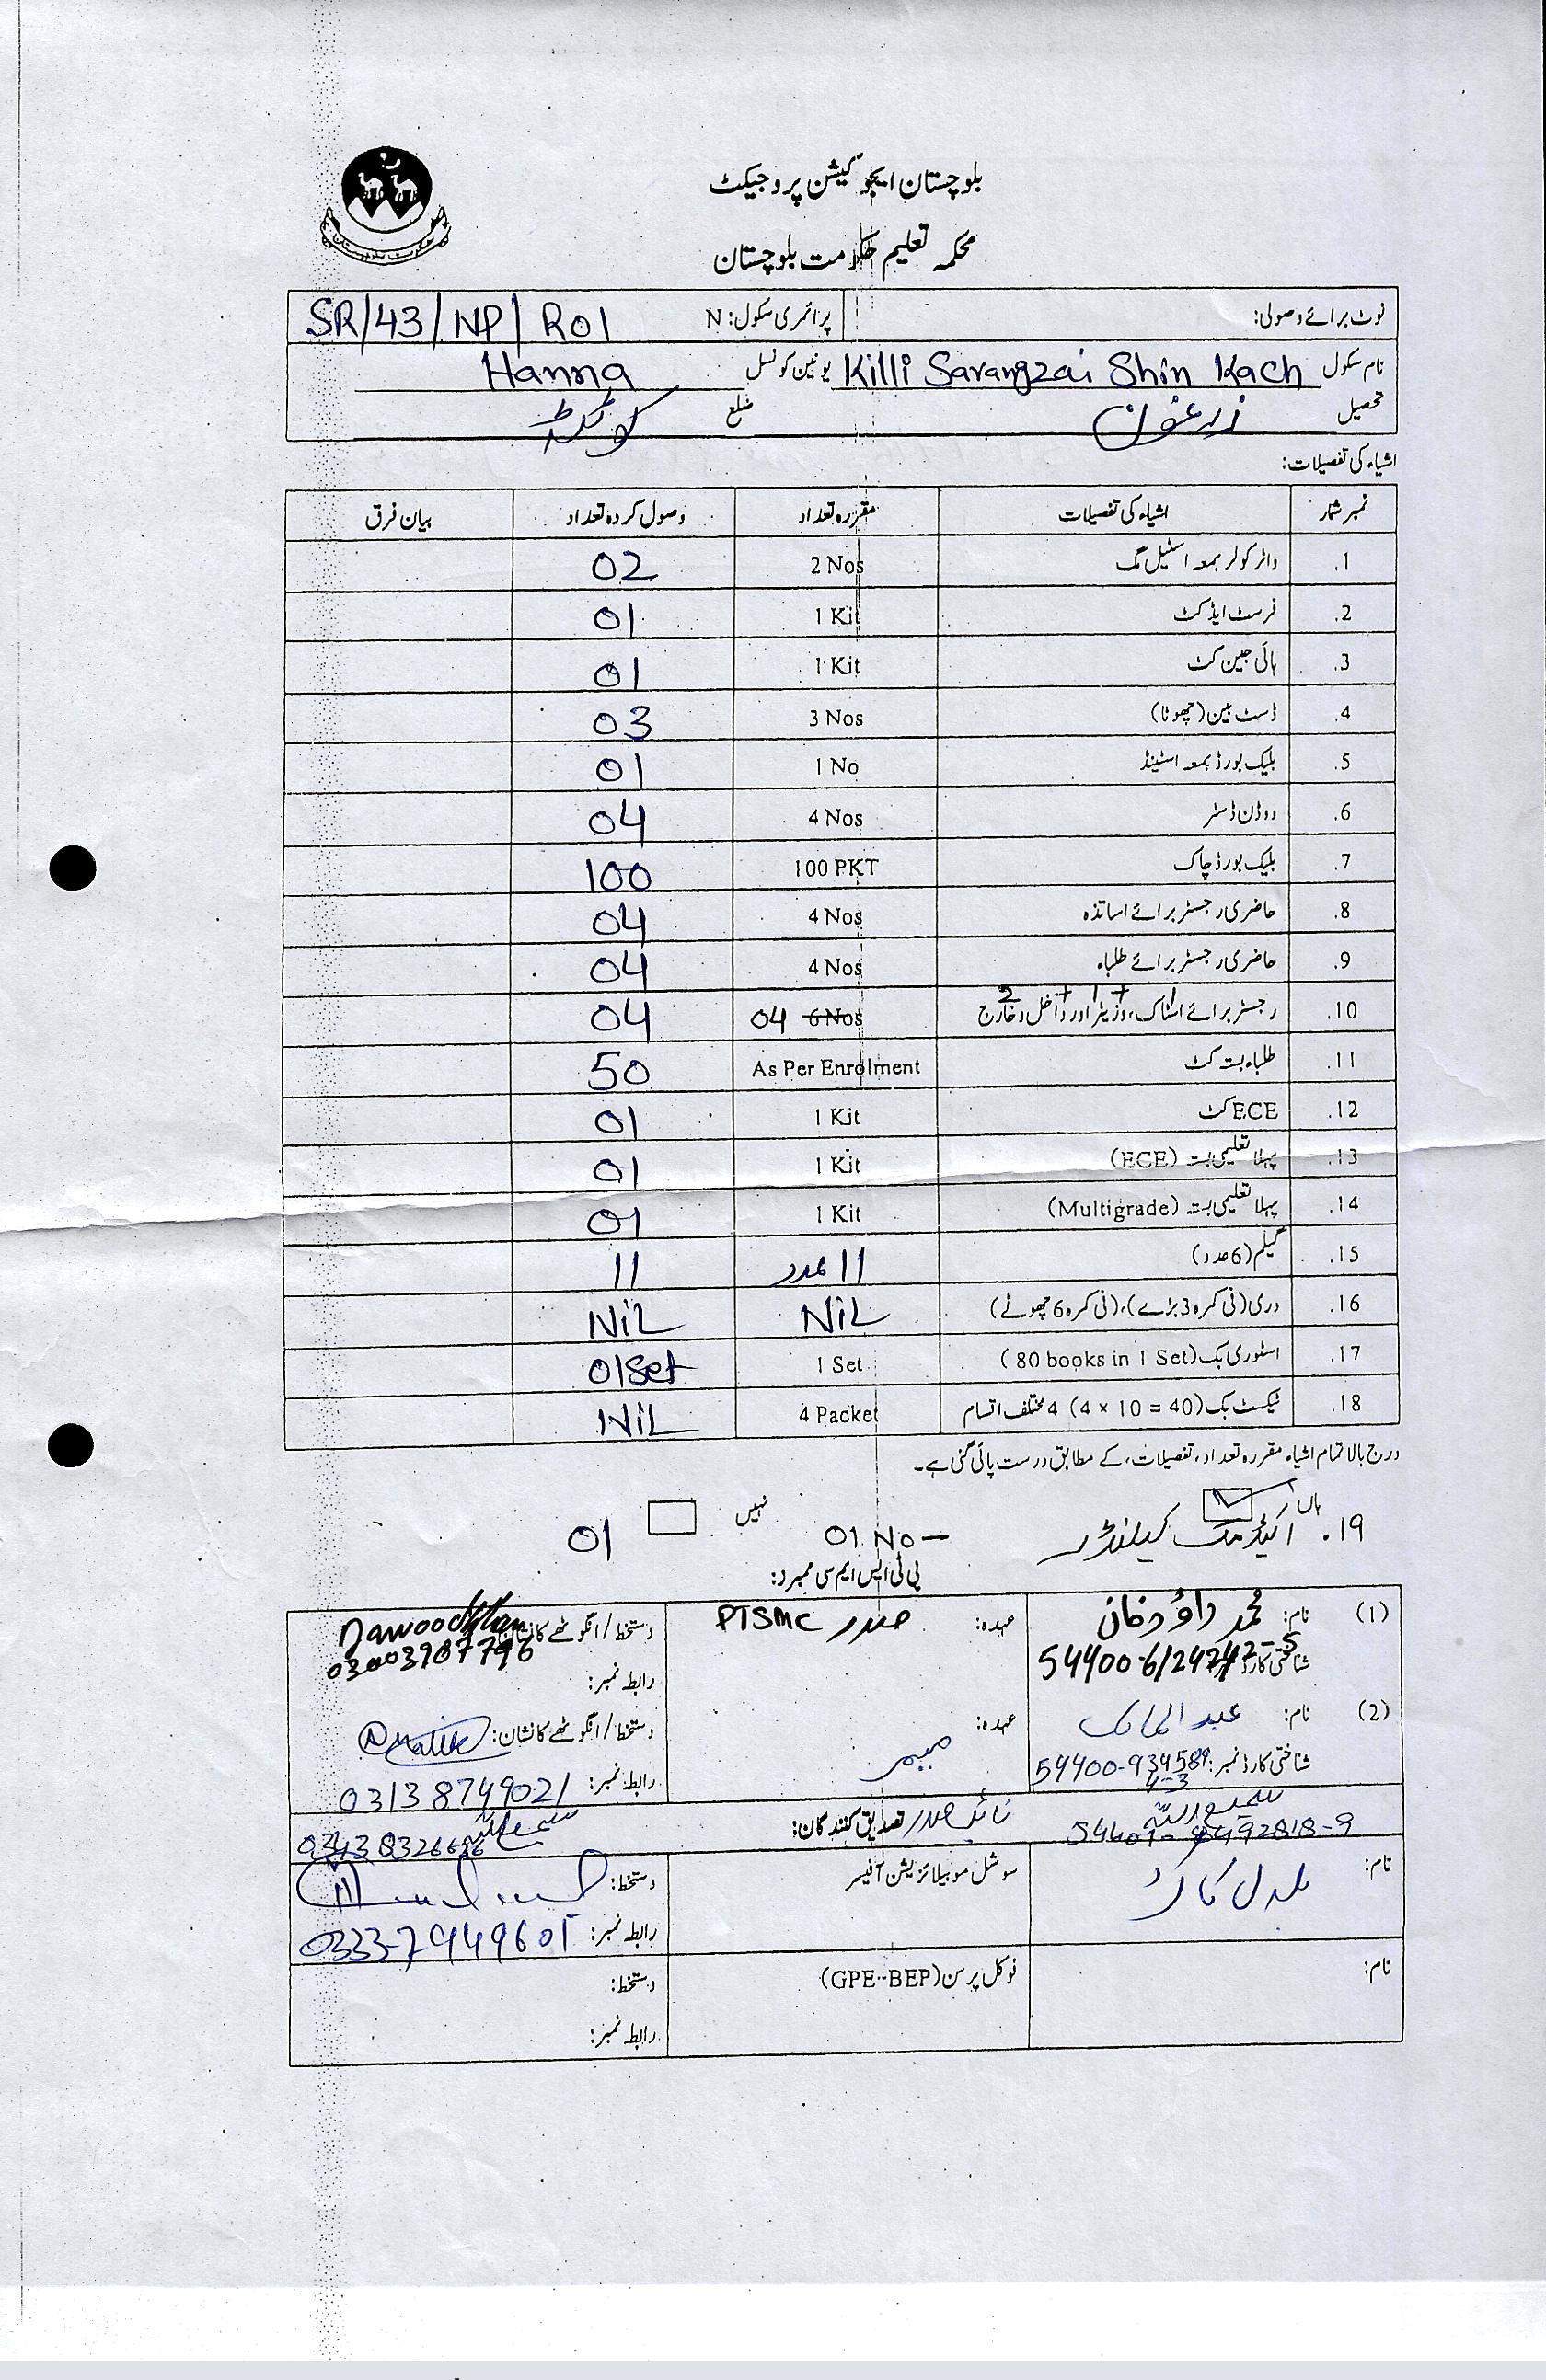 بلوچستان ایجوکیشن پروجیکٹ
محکمہ تعلیم حکومت بلوچستان
نوٹ برائے وصولی: پرائمری سکول: N SR/43/NP/R01
نام سکول Killi Sarangzai Shin Kach یونین کونسل Hanna
تحصیل زرغون ضلع کوئٹہ
اشیاء کی تفصیلات:
نمبر شمار اشیاء کی تفصیلات مقررہ تعداد وصول کردہ تعداد بیان فرق
1. واٹر کولر بمعہ اسٹیل مگ 2 Nos 02
2. فرسٹ ایڈ کٹ 1 Kit 01
3. ہائی جین کٹ 1 Kit 01
4. ڈسٹ بین (چھوٹا) 3 Nos 03
5. بلیک بورڈ بمعہ اسٹینڈ 1 No 01
6. ووڈن ڈسٹر 4 Nos 04
7. بلیک بورڈ چاک 100 PKT 100
8. حاضری رجسٹر برائے اساتذہ 4 Nos 04
9. حاضری رجسٹر برائے طلباء 4 Nos 04
2 + 1 + 1
10. رجسٹر برائے اسٹاک، وزیٹر اور داخل و خارج 6 Nos 04 04
11. طلباء بستہ کٹ As Per Enrolment 50
12. ECE کٹ 1 Kit 01
13. پہلا تعلیمی بستہ (ECE) 1 Kit 01
14. پہلا تعلیمی بستہ (Multigrade) 1 Kit 01
15. گیلم (6 عدد) 11 عدد 11
16. دری (فی کمرہ 3 بڑے)، (فی کمرہ 6 چھوٹے) NiL NiL
17. اسٹوری بک (80 books in 1 Set) 1 Set 01Set
18. ٹیکسٹ بک (4 × 10 = 40) 4 مختلف اقسام 4 Packet NiL
درج بالا تمام اشیاء مقررہ تعداد، تفصیلات، کے مطابق درست پائی گئی ہے۔
ہاں نہیں
19. اکیڈمک کیلنڈر 01 No – 01
پی ٹی ایس ایم سی ممبرز:
(1) نام: محمد داؤد خان عہدہ: صدر PTSMC دستخط/انگوٹھے کا نشان: Dawood Khan
شناختی کارڈ 03003987796
رابطہ نمبر:
(2) نام: عبدالمالک عہدہ: ممبر دستخط/انگوٹھے کا نشان: Malik
شناختی کارڈ نمبر: 54400-934589 4-3 رابطہ نمبر: 03138749021
سمیع اللہ نائب صدر تصدیق کنندگان: سمیع اللہ
نام: سوشل موبیلائزیشن آفیسر دستخط:
رابطہ نمبر: 0333-7949601
نام: فوکل پرسن (GPE-BEP) دستخط:
رابطہ نمبر: